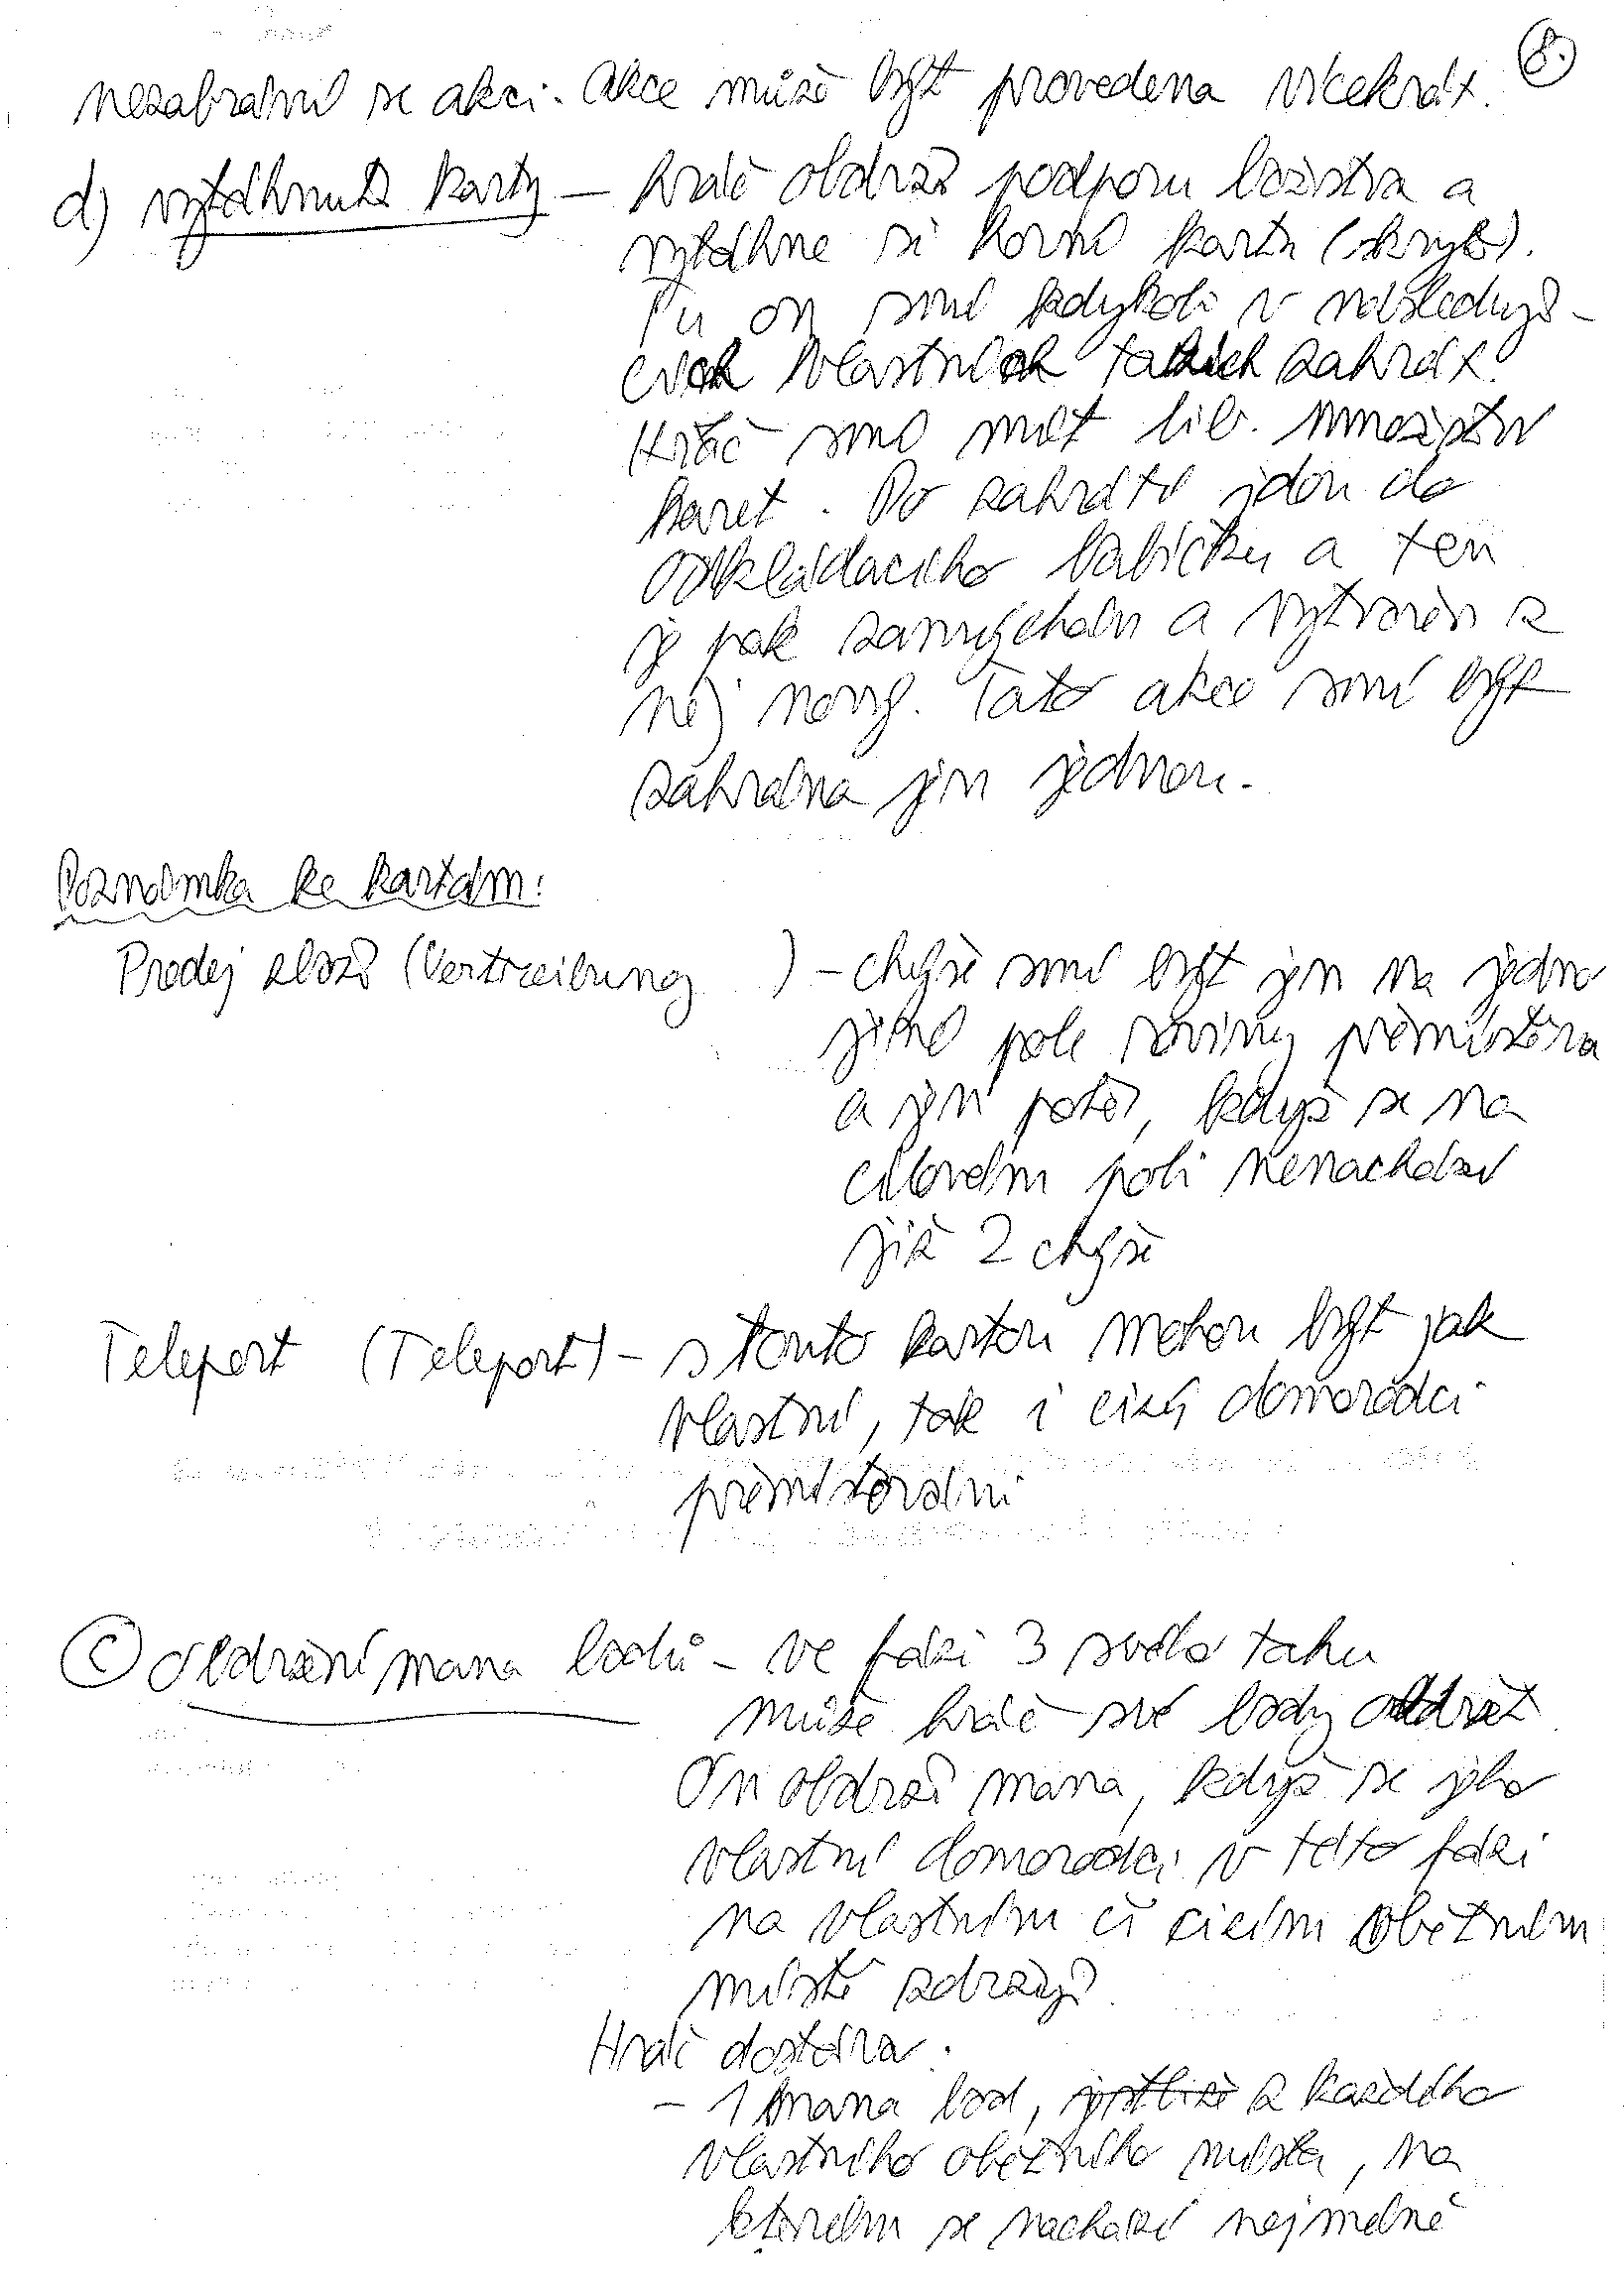 8.
nezabrání se akci. Akce může být provedena vícekrát.
d) vytáhnutí karty – hráč obdrží podporu božstva a
vytáhne si horní kartu (skrytě).
Tu on smí kdykoli v následují-
cích vlastních tazích zahrát.
Hráč smí mít lib. množství
karet. Po zahrátí jdou do
odkládacího balíčku a ten
je pak zamíchán a vytvořen z
něj nový. Tato akce smí být
zahrána jen jednou.
Poznámka ke kartám:
Prodej zboží (Vertreibung ) – chýše smí být jen na jedno
jiné pole roviny přemístěna
a jen poté, když se na
cílovém poli nenachází
již 2 chýše
Teleport (Teleport) – s touto kartou mohou být jak
vlastní, tak i cizí domorodci
přemisťováni
C obdržení mana bodů – ve fázi 3 svého tahu
může hráč své body obdržet
On obdrží mana, když se jeho
vlastní domorodci v této fázi
na vlastním či cizím obětním
místě zdržují.
Hráč dostává:
– 1 mana bod, jestliže z každého
vlastního obětního místa, na
kterém se nachází nejméně